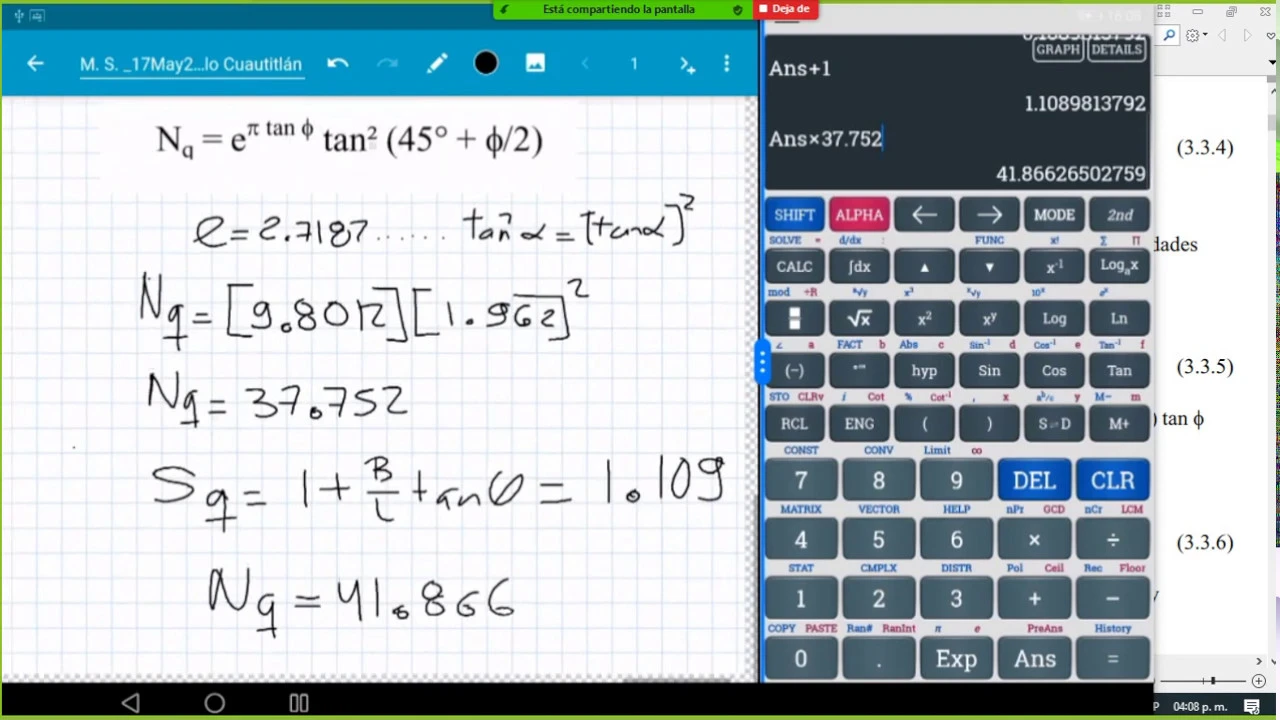 Está compartiendo la pantalla
Deja de
M. S. _17May2...lo Cuautitlán
1
N_q = e^{π tan ϕ} tan² (45° + ϕ/2)
e = 2.7187...... tan² α = [tan α]²
Nq = [9.8012][1.962]²
Nq = 37.752
Sq = 1 + B/L tan φ = 1.109
Nq = 41.866
GRAPH DETAILS
Ans+1
1.1089813792
Ans×37.752
41.86626502759
SHIFT ALPHA ← → MODE 2nd
SOLVE = d/dx : FUNC x! Σ Π
CALC ∫dx ▲ ▼ x⁻¹ Logₐx
mod ÷R ³√y x³ ˣ√y 10ˣ eˣ
√x x² xʸ Log Ln
∠ a FACT b Abs c Sin⁻¹ d Cos⁻¹ e Tan⁻¹ f
(−) °'" hyp Sin Cos Tan
STO CLRv i Cot % Cot⁻¹ , x aᵇ/c y M− m
RCL ENG ( ) S⇔D M+
CONST CONV Limit ∞
7 8 9 DEL CLR
MATRIX VECTOR HELP nPr GCD nCr LCM
4 5 6 × ÷
STAT CMPLX DISTR Pol Ceil Rec Floor
1 2 3 + −
COPY PASTE Ran# RanInt π e PreAns History
0 . Exp Ans =
(3.3.4)
dades
(3.3.5)
) tan ϕ
(3.3.6)
04:08 p. m.